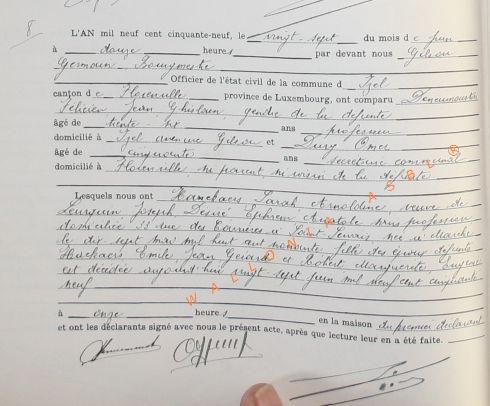 8
L'AN mil neuf cent cinquante-neuf, le vingt-sept du mois de juin
à douze heures par devant nous Gilson
Germain Bourgmestre
Officier de l'état civil de la commune d Izel
canton de Florenville province de Luxembourg, ont comparu Deneumoustier
Félicien Jean Ghislain, gendre de la défunte
âgé de trente-six ans professeur
domicilié à Izel avenue Gilson et Dury Omer
âgé de cinquante ans secrétaire communal
domicilié à Florenville, ni parent, ni voisin de la défunte
Lesquels nous ont Sarah, Arnoldine, veuve de
Joseph, Désiré Ephrem Anatole sans profession
domiciliée 33 rue des à Saint-Servais, née à Marche
le dix sept mai mil huit cent nonante fille des époux défunts
Emile, Jean Gérard et Robert Marguerite,
est décédée aujourd'hui vingt-sept juin mil neuf cent cinquante
neuf
à onze heures en la maison du premier déclarant
et ont les déclarants signé avec nous le présent acte, après que lecture leur en a été faite.
WALLONIA ASBL ©